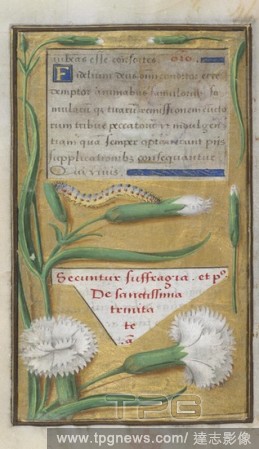 iubeas esse consortes oro.
Fidelium deus omniū conditor et re
demptor animabus famulorū fa
mularūq tuarū remissionem cuncto
rum tribue peccatorū ut indulgen
tiam quā semper optauerunt piis
supplicationibz consequantur
Qui viuis.
Secuntur suffragia. et pº
De sanctissima
trinita
te
.ã.
TPG
www.tpgnews.com/達志影像